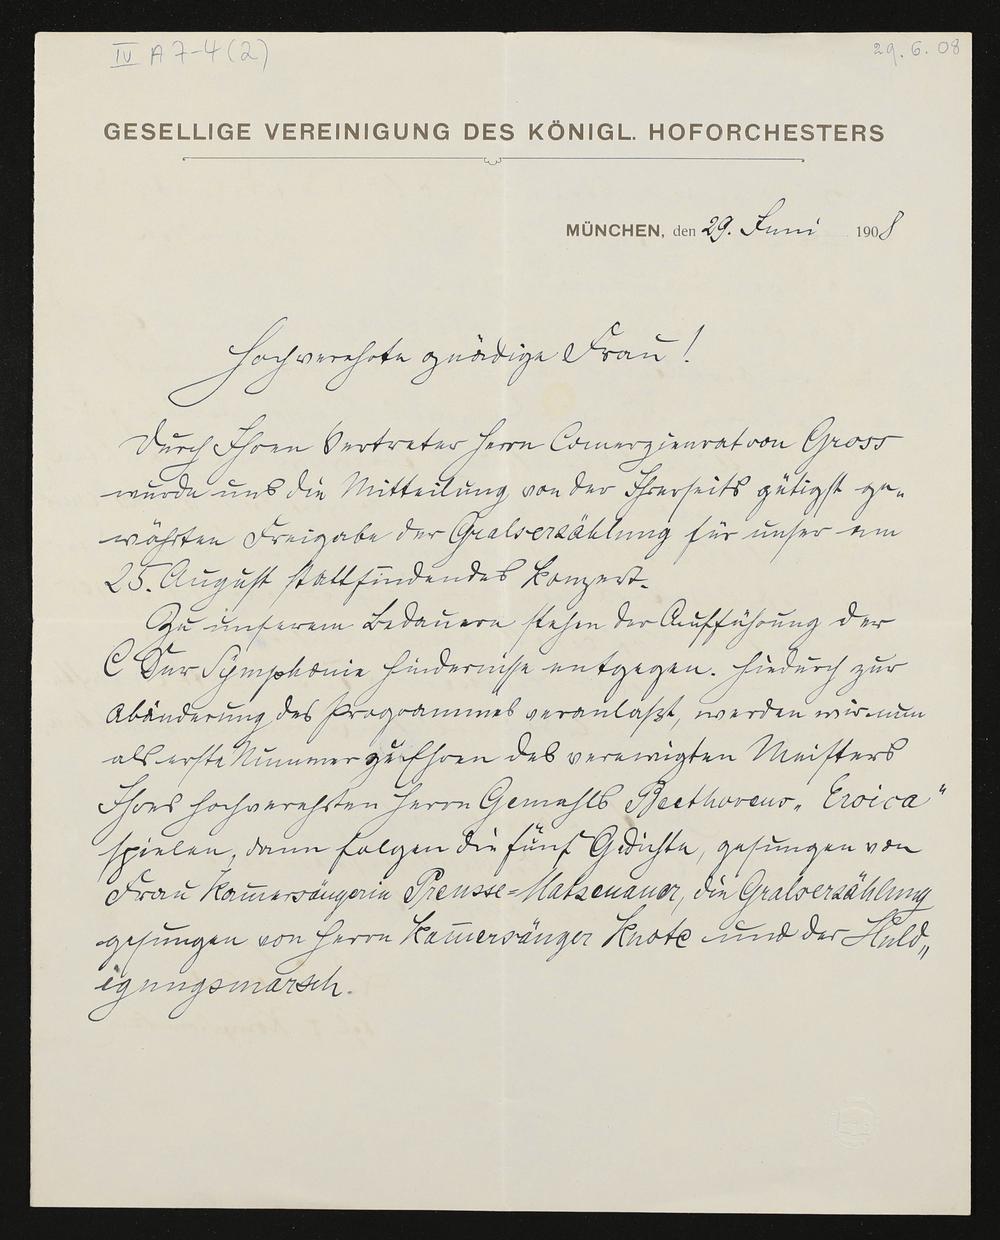 IV A 7-4 (2)
29. 6. 08
GESELLIGE VEREINIGUNG DES KÖNIGL. HOFORCHESTERS
MÜNCHEN, den 29. Juni 1908
Hochverehrte gnädige Frau!
Durch Ihren Vertreter Herrn Comerzienrat von Gross
wurde uns die Mitteilung von der Ihrerseits gütigst ge-
währten Freigabe der Gralserzählung für unser am
25. August stattfindendes Konzert.
Zu unserem Bedauern stehen der Aufführung der
C Dur Symphonie Hindernisse entgegen. Hiedurch zur
Abänderung des Programmes veranlaßt, werden wir nun
als erste Nummer zu Ehren des verewigten Meisters
Ihres hochverehrten Herrn Gemahls Beethovens „Eroica"
spielen, dann folgen die fünf Gedichte, gesungen von
Frau Kam̅ersängerin Preusse=Matzenauer, die Gralserzählung
gesungen von Herrn Kam̅ersänger Knote und der Huld„
igungsmarsch.